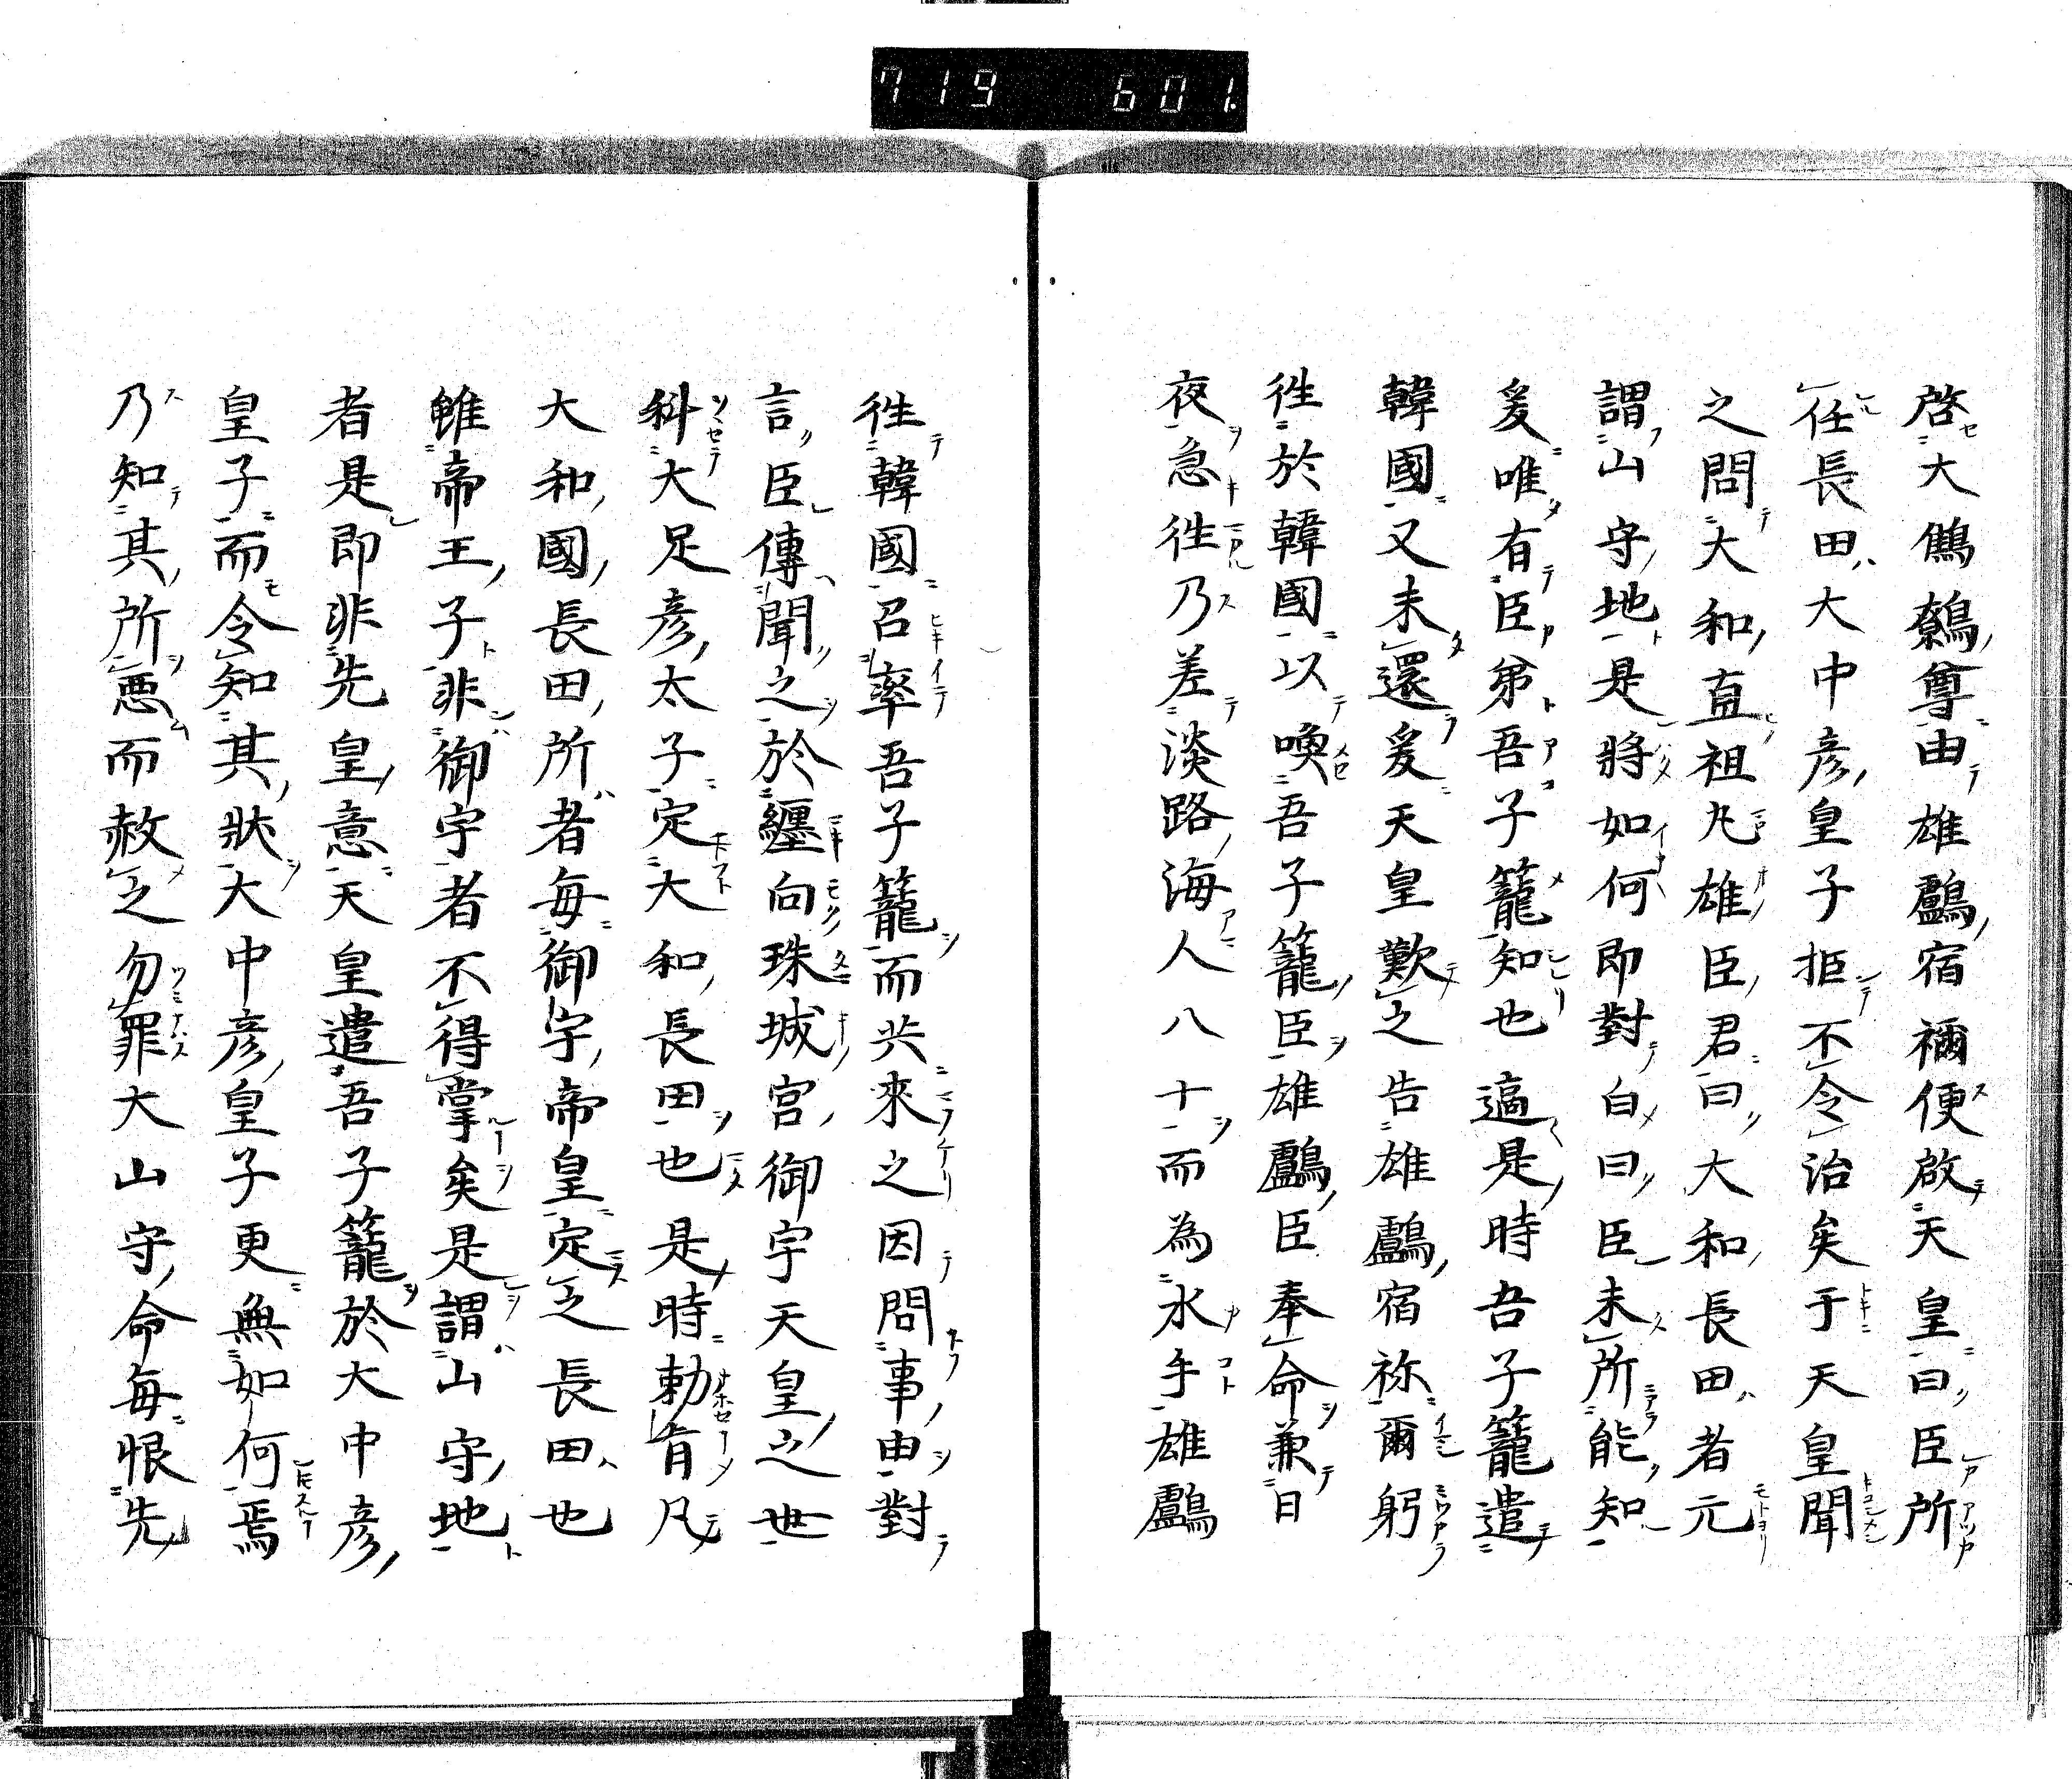 719 601.
啓大鷦鷯尊由雄鸕宿禰便啟天皇曰臣所
任長田大中彦皇子拒不令治矣于天皇聞
之問大和直祖丸雄臣君曰大和長田者元
謂山守地是將如何即對白曰臣未所能知
爰唯有臣弟吾子籠知也適是時吾子籠遣
韓國又未還爰天皇歎之告雄鸕宿祢爾躬
徃於韓國以喚吾子籠臣雄鸕臣奉命兼日
夜急徃乃差淡路海人八十而為水手雄鸕
徃韓國召率吾子籠而共來之因問事由對
言臣傳聞之於纏向珠城宮御宇天皇之世
科大足彦太子定大和長田也是時勅旨凡
大和國長田所者每御宇帝皇定之長田也
雖帝王子非御宇者不得掌矣是謂山守地
者是即非先皇意天皇遣吾子籠於大中彦
皇子而令知其狀大中彦皇子更無如何焉
乃知其所悪而赦之勿罪大山守命每恨先